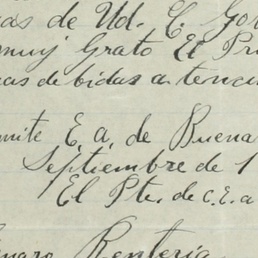 as de Ud. E. Gor
muy Grato El Pr
as debidas atenci
mite E. a. de Buena
Septiembre de 1
El Pte. de C. E. a
naro Renteria